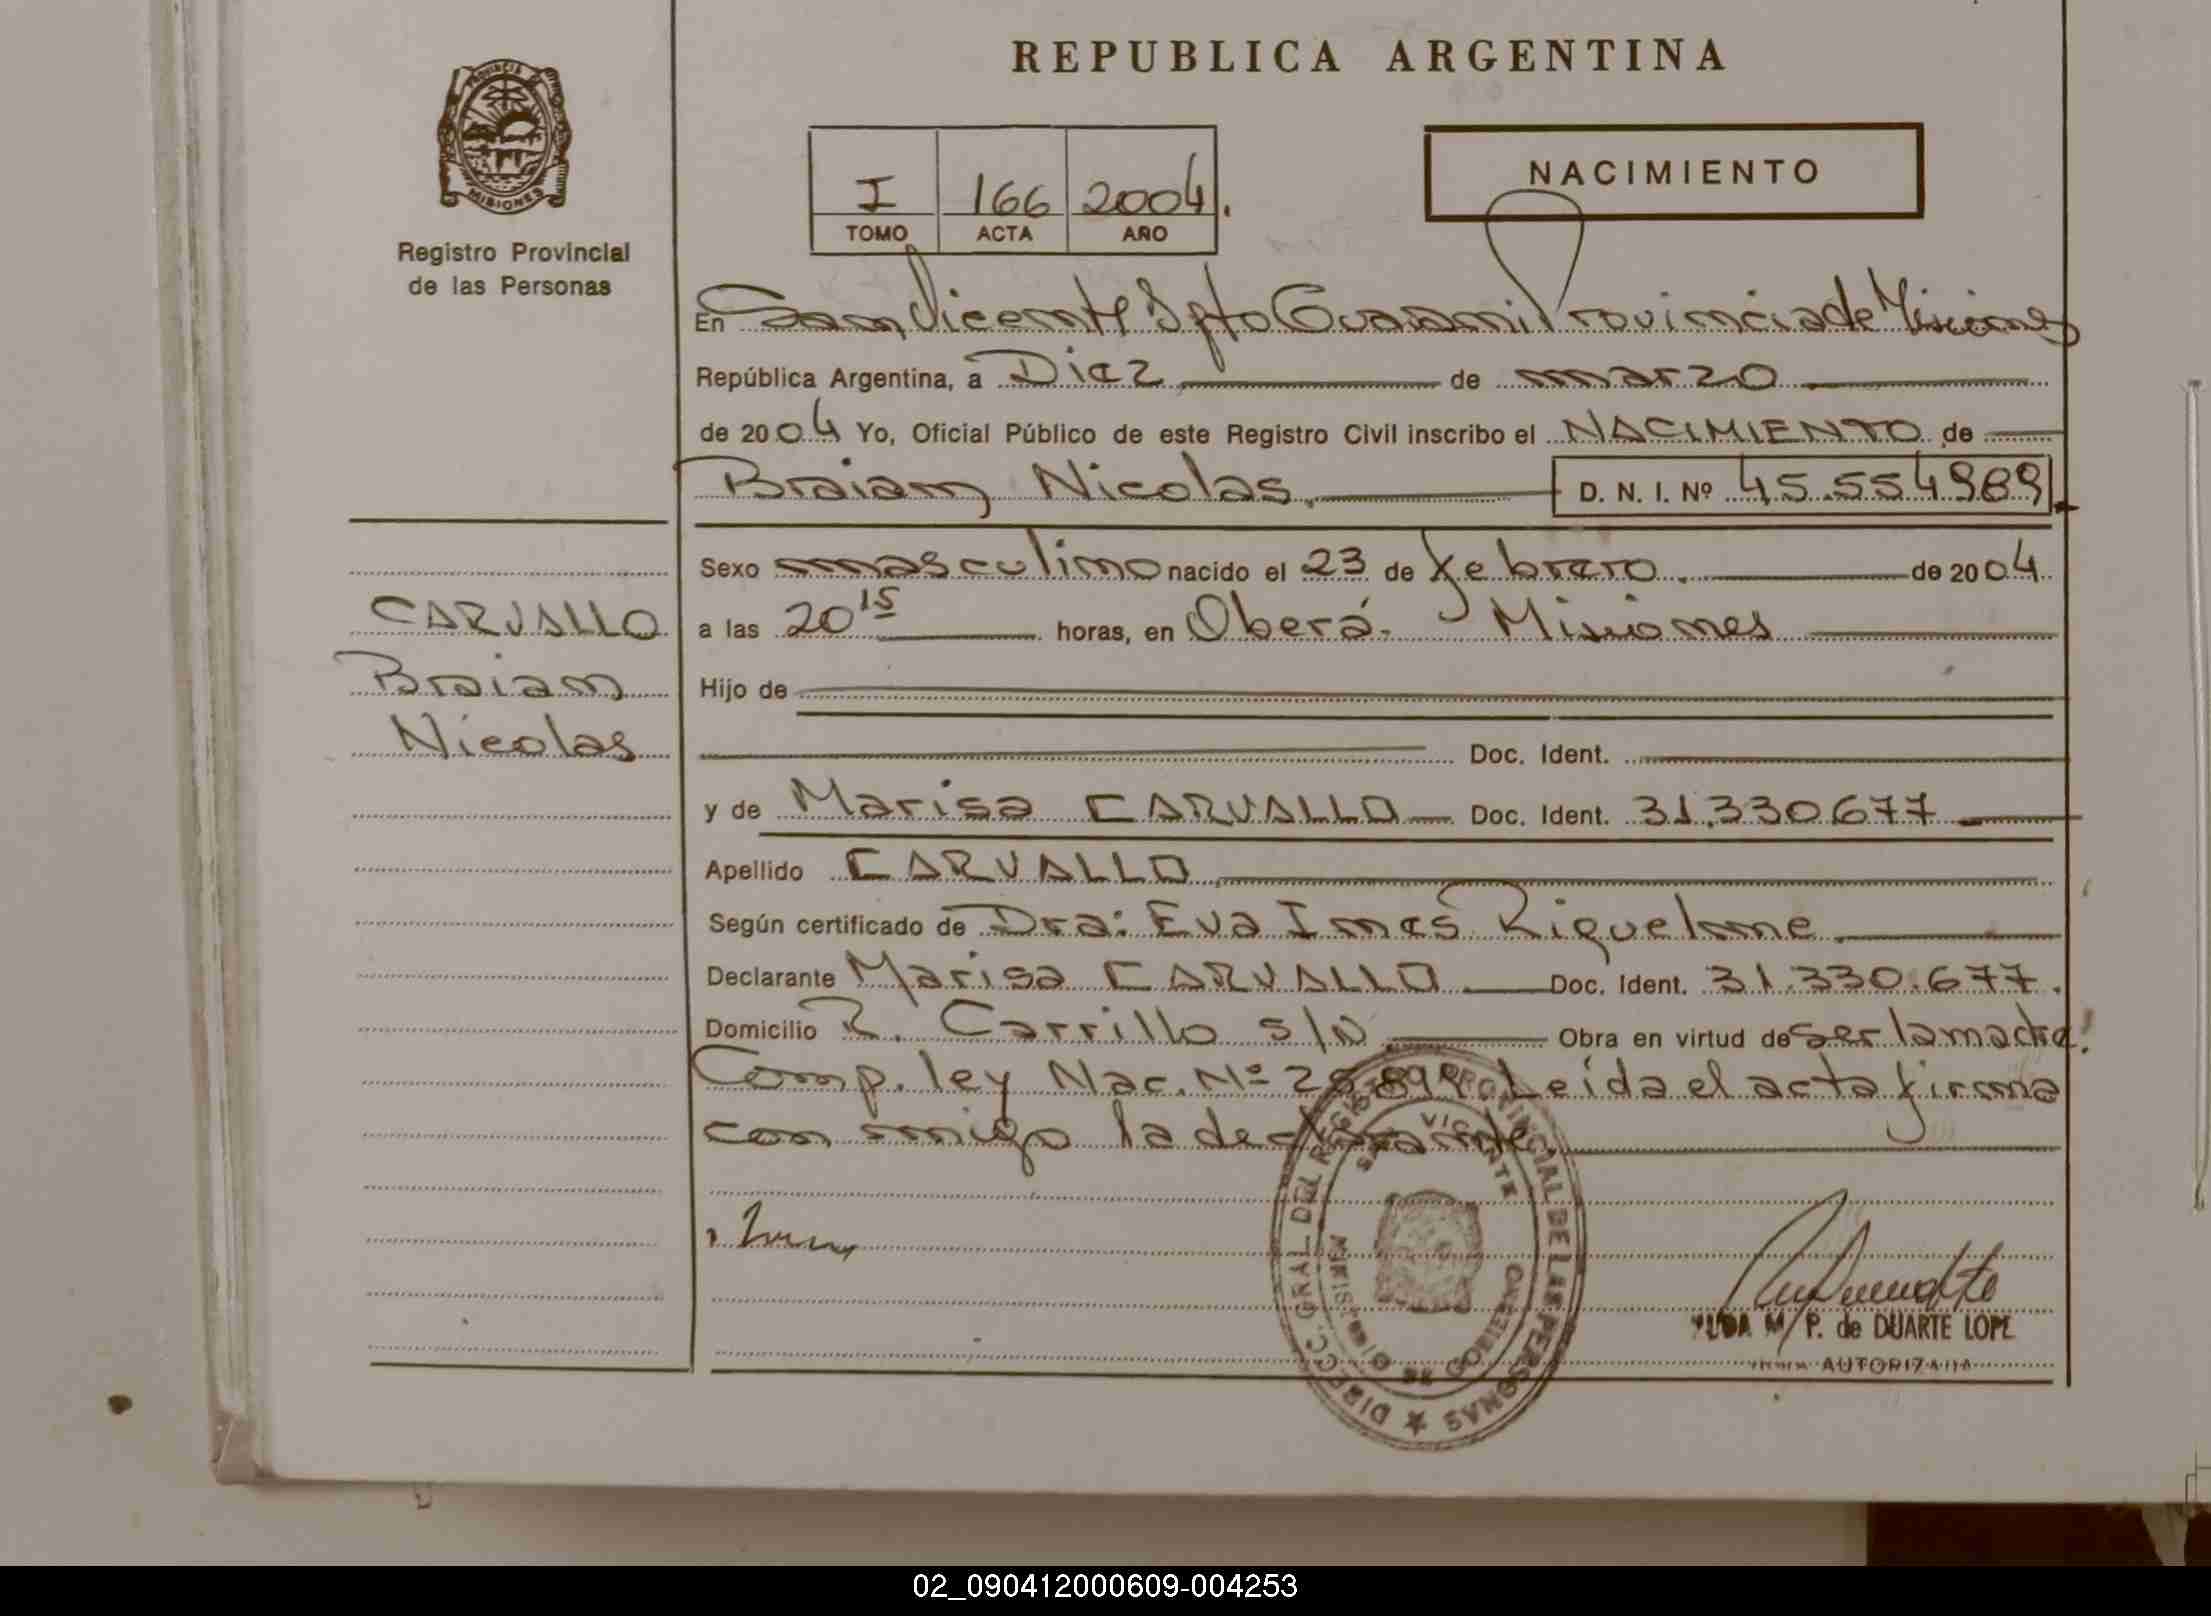 REPUBLICA ARGENTINA
PROVINCIA DE
MISIONES
Registro Provincial
de las Personas
I 166 2004.
TOMO ACTA AÑO
NACIMIENTO
En San Vicente Dpto Guaraní Provincia de Misiones
República Argentina, a Diez de marzo
de 2004 Yo, Oficial Público de este Registro Civil inscribo el NACIMIENTO de
Braian Nicolas. D. N. I. Nº 45.554989.
Sexo masculino nacido el 23 de febrero. de 2004
a las 20 15 horas, en Oberá. Misiones
Hijo de
Doc. Ident.
y de Marisa CARVALLO Doc. Ident. 31.330677
Apellido CARVALLO
Según certificado de Dra: Eva Ines Riquelme
Declarante Marisa CARVALLO Doc. Ident. 31.330.677.
Domicilio R. Carrillo s/n Obra en virtud de ser la madre.
Comp. ley Nac. Nº Leída el acta firma
con migo la declarante.
CARVALLO
Braian
Nicolas
DIRECC. GRAL. DEL REGISTRO PROVINCIAL DE LAS PERSONAS
SAN VICENTE
MINISTERIO DE GOBIERNO
M. P. de DUARTE LOPE
AUTORIZADA
02_090412000609-004253